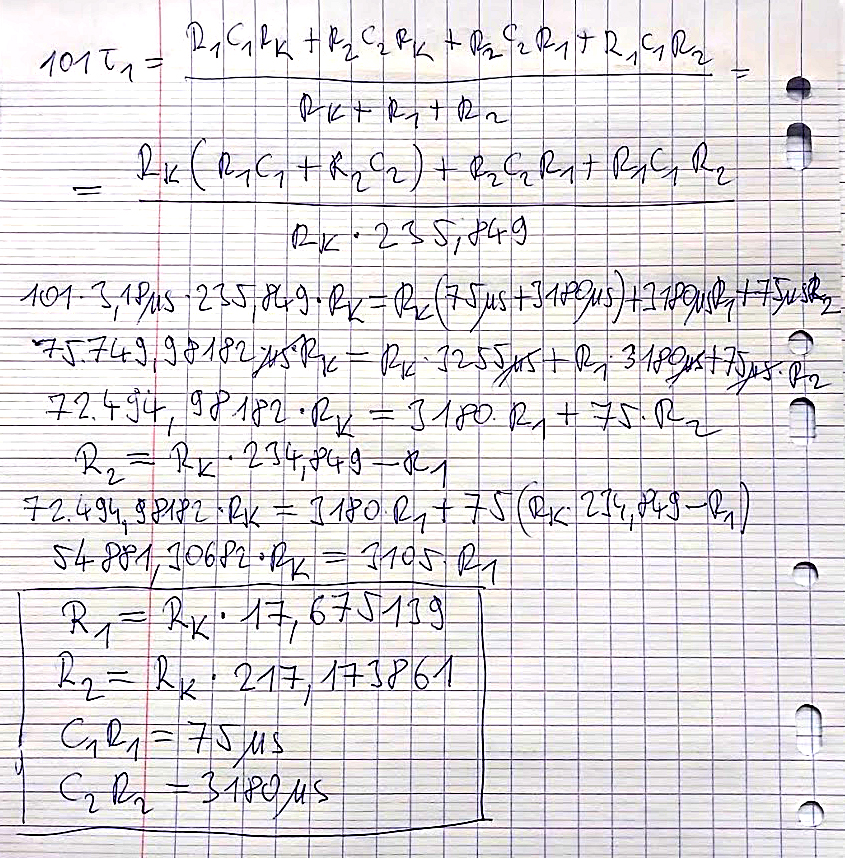 101 τ₁ = (R₁C₁Rₖ + R₂C₂Rₖ + R₂C₂R₁ + R₁C₁R₂) / (Rₖ + R₁ + R₂) =
= (Rₖ(R₁C₁ + R₂C₂) + R₂C₂R₁ + R₁C₁R₂) / (Rₖ · 235,849)
101 · 3,18µs · 235,849 · Rₖ = Rₖ(75µs + 3180µs) + 3180µsR₁ + 75µsR₂
75.749,98182 µs·Rₖ = Rₖ · 3255µs + R₁ · 3180µs + 75µs · R₂
72.494,98182 · Rₖ = 3180 · R₁ + 75 · R₂
R₂ = Rₖ · 234,849 − R₁
72.494,98182 · Rₖ = 3180 · R₁ + 75(Rₖ · 234,849 − R₁)
54881,30682 · Rₖ = 3105 · R₁
R₁ = Rₖ · 17,675139
R₂ = Rₖ · 217,173861
C₁R₁ = 75µs
C₂R₂ = 3180µs